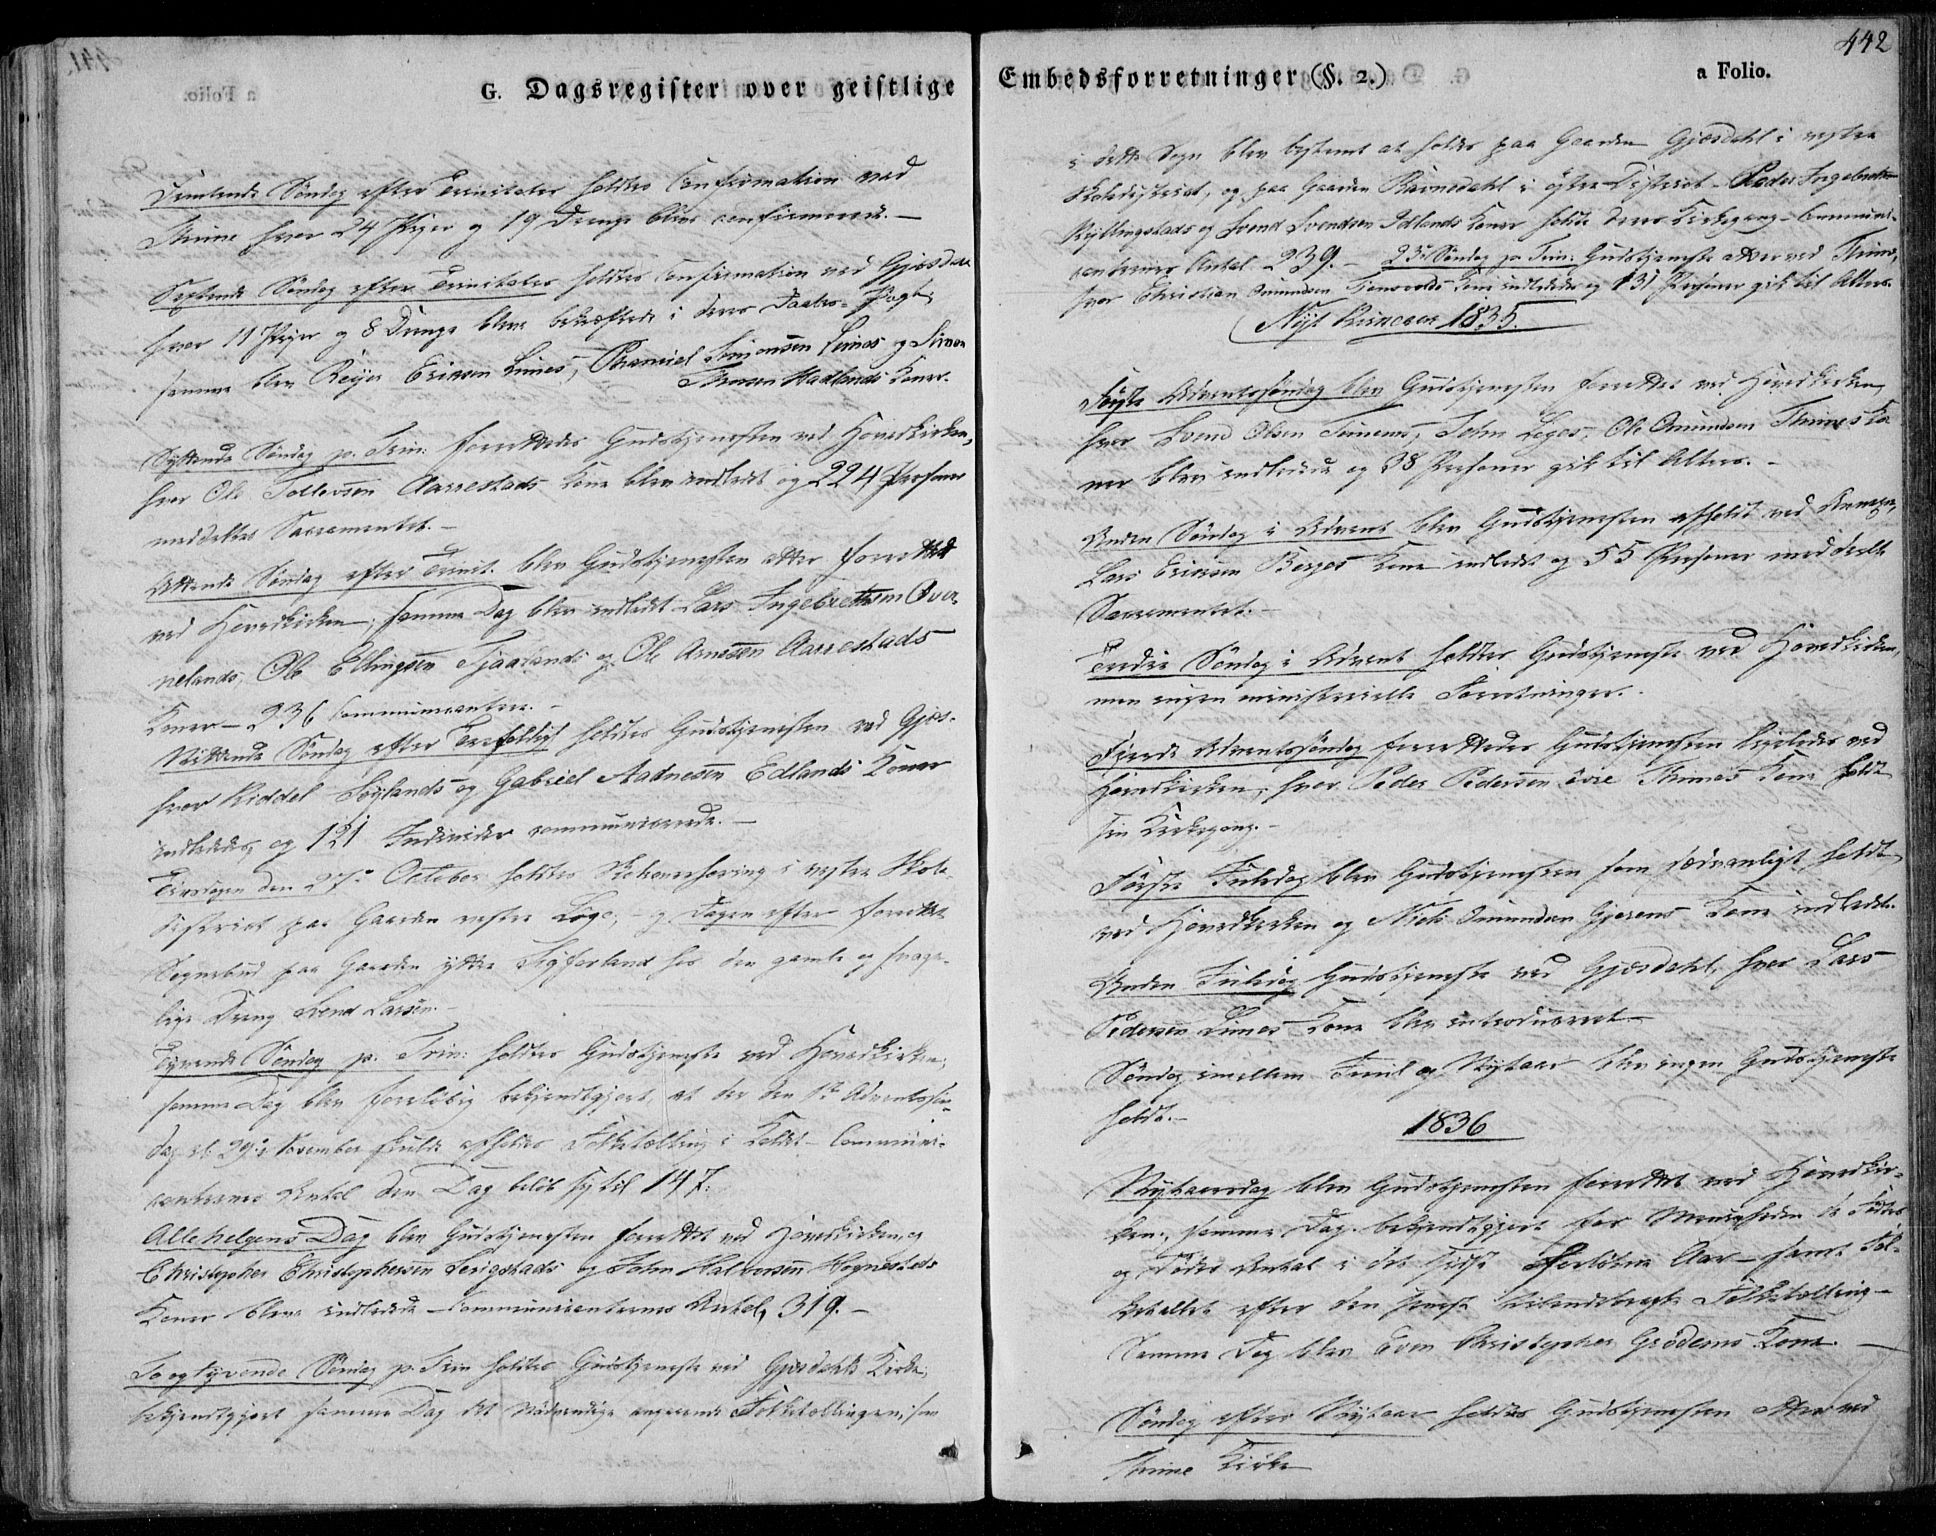 G. Dagsregister over geistlige
Femtende Søndag efter Trinitatis holdtes Confirmation ved
Thime hvor 24 Piger og 19 Drenge blev confirmerede.—
Sextende Søndag efter Trinitatis holdtes Confirmation ved Gjesdal
hvor 11 Piger og 8 Drenge bleve bekræftede i deres Daabs-Pagt,
samme blev Reijer Ericsen Limes, Simonsen Limes og Simon
Thorsen Madlands Koner.
Syttende Søndag p. Trin: forrettedes Gudstjenesten ved Hovedkirken,
hvor Ole Tollevsen Aarrestads Kone blev indledt og 224 Personer
meddeltes Sacramentet.—
Attende Søndag efter Trinit. blev Gudstjenesten atter forrettet
ved Hovedkirken; samme Dag blev indledt Lars Ingebretsen Over-
nelands, Ole Ellingsen Tjaalands og Ole Arnesen Aarrestads
Koner — 236 Communicantere.—
Nittende Søndag efter Trefoldigh holdtes Gudstjenesten ved Gjes-
hvor Riddel Søylands og Gabriel Aadnesen Edlands Koner
indlededes, og 121 Individer communicerede.—
Tirsdagen den 27de October holdtes i vestre Skole-
district paa Gaarden vestre Lyge, — og Dagen efter forrettet
Sognebud paa Gaarden ydtre Sigforland hos den gamle og svage-
lige Dreng Svend Larsen.—
Tyvende Søndag p. Trin: holdtes Gudstjeneste ved Hovedkirken;
samme Dag blev foreløbig bekjendtgjort, at der den 1ste Adventssøn-
dag d. 29de November skulde afholdes Folketælling i — Communi-
canternes Antal den Dag beløb sig til 147.
Allehelgens Dag blev Gudstjenesten forrettet ved Hovedkirken, og
Christopher Christophersen Serigstads og John Halvorsen Hognestads
Koner bleve indledede — Communicanternes Antal, 319.—
To og tyvende Søndag p. Trin holdtes Gudstjeneste ved Gjesdahls Kirke,
bekjendtgjort samme Dag det Nødvendige angaaende Folketællingen, som
442
Embedsforretninger (§. 2.)
a Folio.
i dette Sogn blev bestemt at holdes paa Gaarden Gjesdahl i vestre
Skoledistrict, og paa Gaarden Ravnedahl i østre District — Peder Ingebretsen
Ryllingstads og Svend Svendsen Edlands Koner holdt deres Kirkegang — Communi-
canternes Antal 239.— 23de Søndag p. Trin: Gudstjeneste atter ved Thime,
hvor Christian Omundsen Kone indlededes og 131 Personer gik til Alters.
Nyt Kirkeaar 1835.
Første Adventssøndag blev Gudstjenesten forrettet ved Hovedkirken,
hvor Svend Olsen Tunems, John Lyges, Ole Omundsen Thimes Ko-
ner blev indledede og 38 Personer gik til Alters.—
Anden Søndag i Advent blev Gudstjenesten afholdt ved Annexet,
Lars Ericsen Berges Kone indledet og 55 Personer meddeelt
Sacramentet.—
Tredie Søndag i Advent holdtes Gudstjeneste ved Hovedkirken,
men ingen ministerielle Forretninger.
Fjerde Adventssøndag forrettedes Gudstjenesten ligeledes ved
Hovedkirken, hvor Peder Pedersen øvre Thimes Kone holdt
sin Kirkegang.—
Første Juledag blev Gudstjenesten som sædvanligt holdt
ved Hovedkirken og Niels Omundsen Gjerens Kone indledt.
Anden Juledag Gudstjeneste ved Gjesdahl, hvor Lars
Pedersen Limes Kone blev introduceret.—
Søndag imellem Juul og Nytaar blev ingen Gudstjeneste
holdt.—
1836
Nytaarsdag blev Gudstjenesten forrettet ved Hovedkir-
ken, samme Dag bekjendtgjort for Menigheden de Fødtes
og Dødes Antal i det sidst forløbne Aar — samt Fol-
ketallet efter den senest Folketælling —
Samme Dag blev Even Christopher Grødems Kone. —
Søndag efter Nytaar holdtes Gudstjenesten atter ved
Thime Kirke
a Folio.
441.